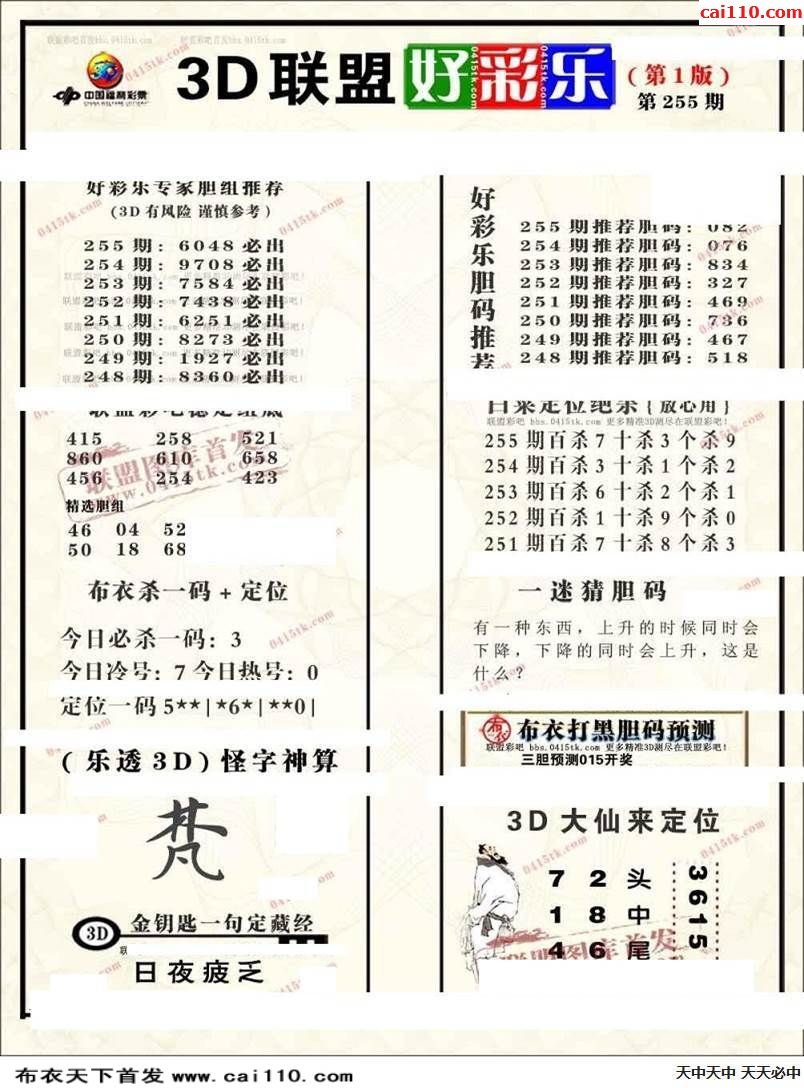 cai110.com
3D联盟 好彩乐
(第1版)
第255期
中国福利彩票
CHINA WELFARE LOTTERY
好彩乐专家胆组推荐
(3D有风险 谨慎参考)
255期: 6048必出
254期: 9708必出
253期: 7584必出
252期: 7438必出
251期: 6251必出
250期: 8273必出
249期: 1927必出
248期: 8360必出
415 258 521
860 610 658
456 254 423
精选胆组
46 04 52
50 18 68
布衣杀一码+定位
今日必杀一码: 3
今日冷号: 7 今日热号: 0
定位一码 5**|*6*|**0|
(乐透3D)怪字神算
梵
3D
金钥匙一句定藏经
日夜疲乏
好彩乐胆码推荐
255期推荐胆码: 082
254期推荐胆码: 076
253期推荐胆码: 834
252期推荐胆码: 327
251期推荐胆码: 469
250期推荐胆码: 736
249期推荐胆码: 467
248期推荐胆码: 518
白菜定位绝杀{放心用}
联盟彩吧 bbs.0415tk.com 更多精准3D测尽在联盟彩吧!
255期百杀7十杀3个杀9
254期百杀3十杀1个杀2
253期百杀6十杀2个杀1
252期百杀1十杀9个杀0
251期百杀7十杀8个杀3
一迷猜胆码
有一种东西,上升的时候同时会
下降,下降的同时会上升,这是
什么?
布衣
布衣打黑胆码预测
联盟彩吧 bbs.0415tk.com 更多精准3D测尽在联盟彩吧!
三胆预测015开奖
3D大仙来定位
7 2 头
1 8 中
4 6 尾
3615
联盟图库首发
www.0415tk.com
布衣天下首发 www.cai110.com
天中天中 天天必中